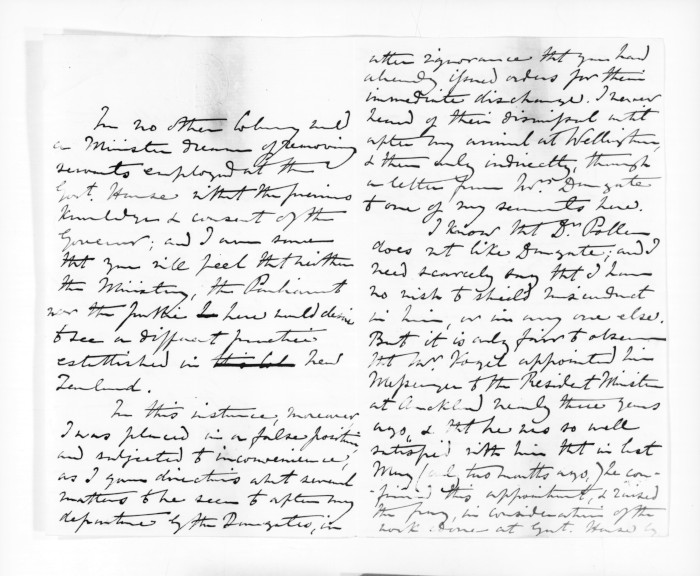 In no other Colony would
a Minister dream of removing
servants employed at the
Govt. House without the previous
knowledge & consent of the
Governor; and I am sure
that you will feel that neither
the Ministry, the Parliament
nor the public here would desire
to see a different practice
established in this Col New
Zealand.
In this instance, moreover
I was placed in a false position,
and subjected to inconvenience,
as I gave directions about several
matters to be seen to after my
departure by the Dungates, in
utter ignorance that you had
already issued orders for their
immediate discharge. I never
heard of their dismissal until
after my arrival at Wellington,
& then only indirectly, through
a letter from Mrs. Dungate
to one of my servants here.
I know that Dr. Pollen
does not like Dungate; and I
need scarcely say that I have
no wish to shield misconduct
in him, or in any one else.
But it is only fair to observe
that Mr. Vogel appointed him
Messenger to the Resident Minister
at Auckland nearly three years
ago, & that he was so well
satisfied with him that in last
May (only two months ago,) he con-
-firmed this appointment, & raised
the pay, in consideration of the
work done at Govt. House by